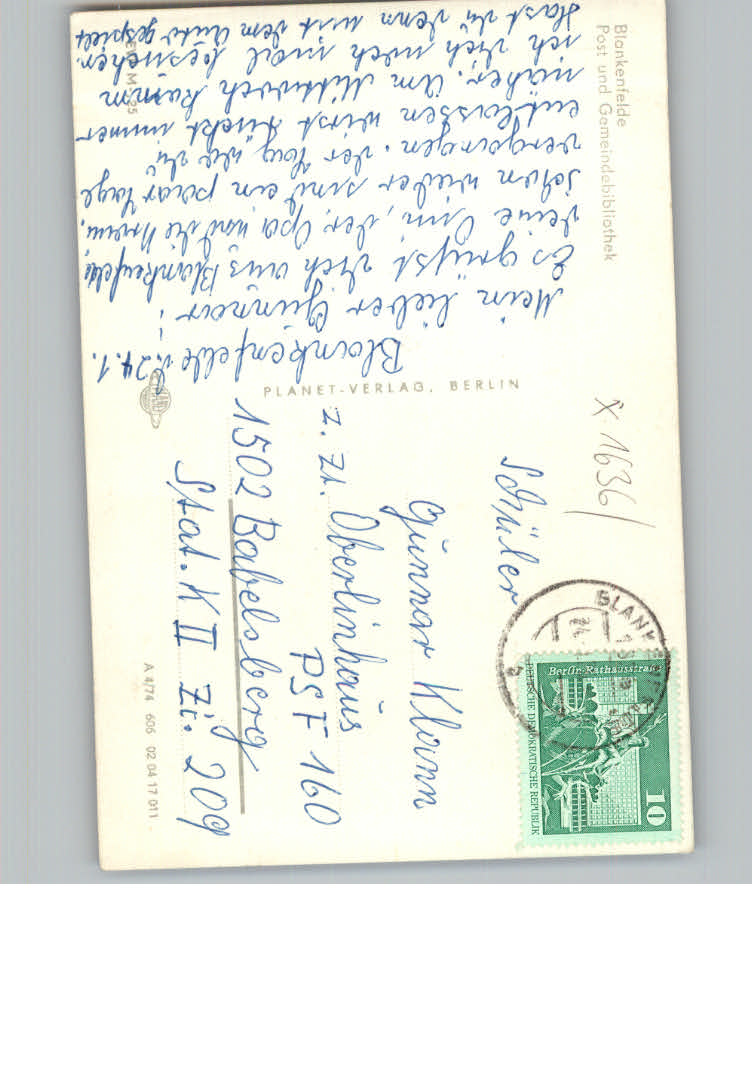 Blankenfelde
Post und Gemeindebibliothek
Blankenfelde d. 24.1.
Mein lieber Gunnar!
Es grüßt dich aus Blankenfelde
deine Omi, der Opa und die
schon wieder sind ein paar Tage
vergangen. der Tag, wo du
entlassen wirst rückt immer
näher. Am Mittwoch komm
ich dich noch mal besuchen.
Hast du denn mit dem Auto gespielt
PLANET-VERLAG, BERLIN
X 1636/
Schüler
Gunnar Klann
z. Zt. Oberlinhaus
PSF 160
1502 Babelsberg
Stat. K II Zi. 209
A 4/74 606 02 04 17 011
BLANKENFELDE
Berlin-Rathausstraße
DEUTSCHE DEMOKRATISCHE REPUBLIK
10